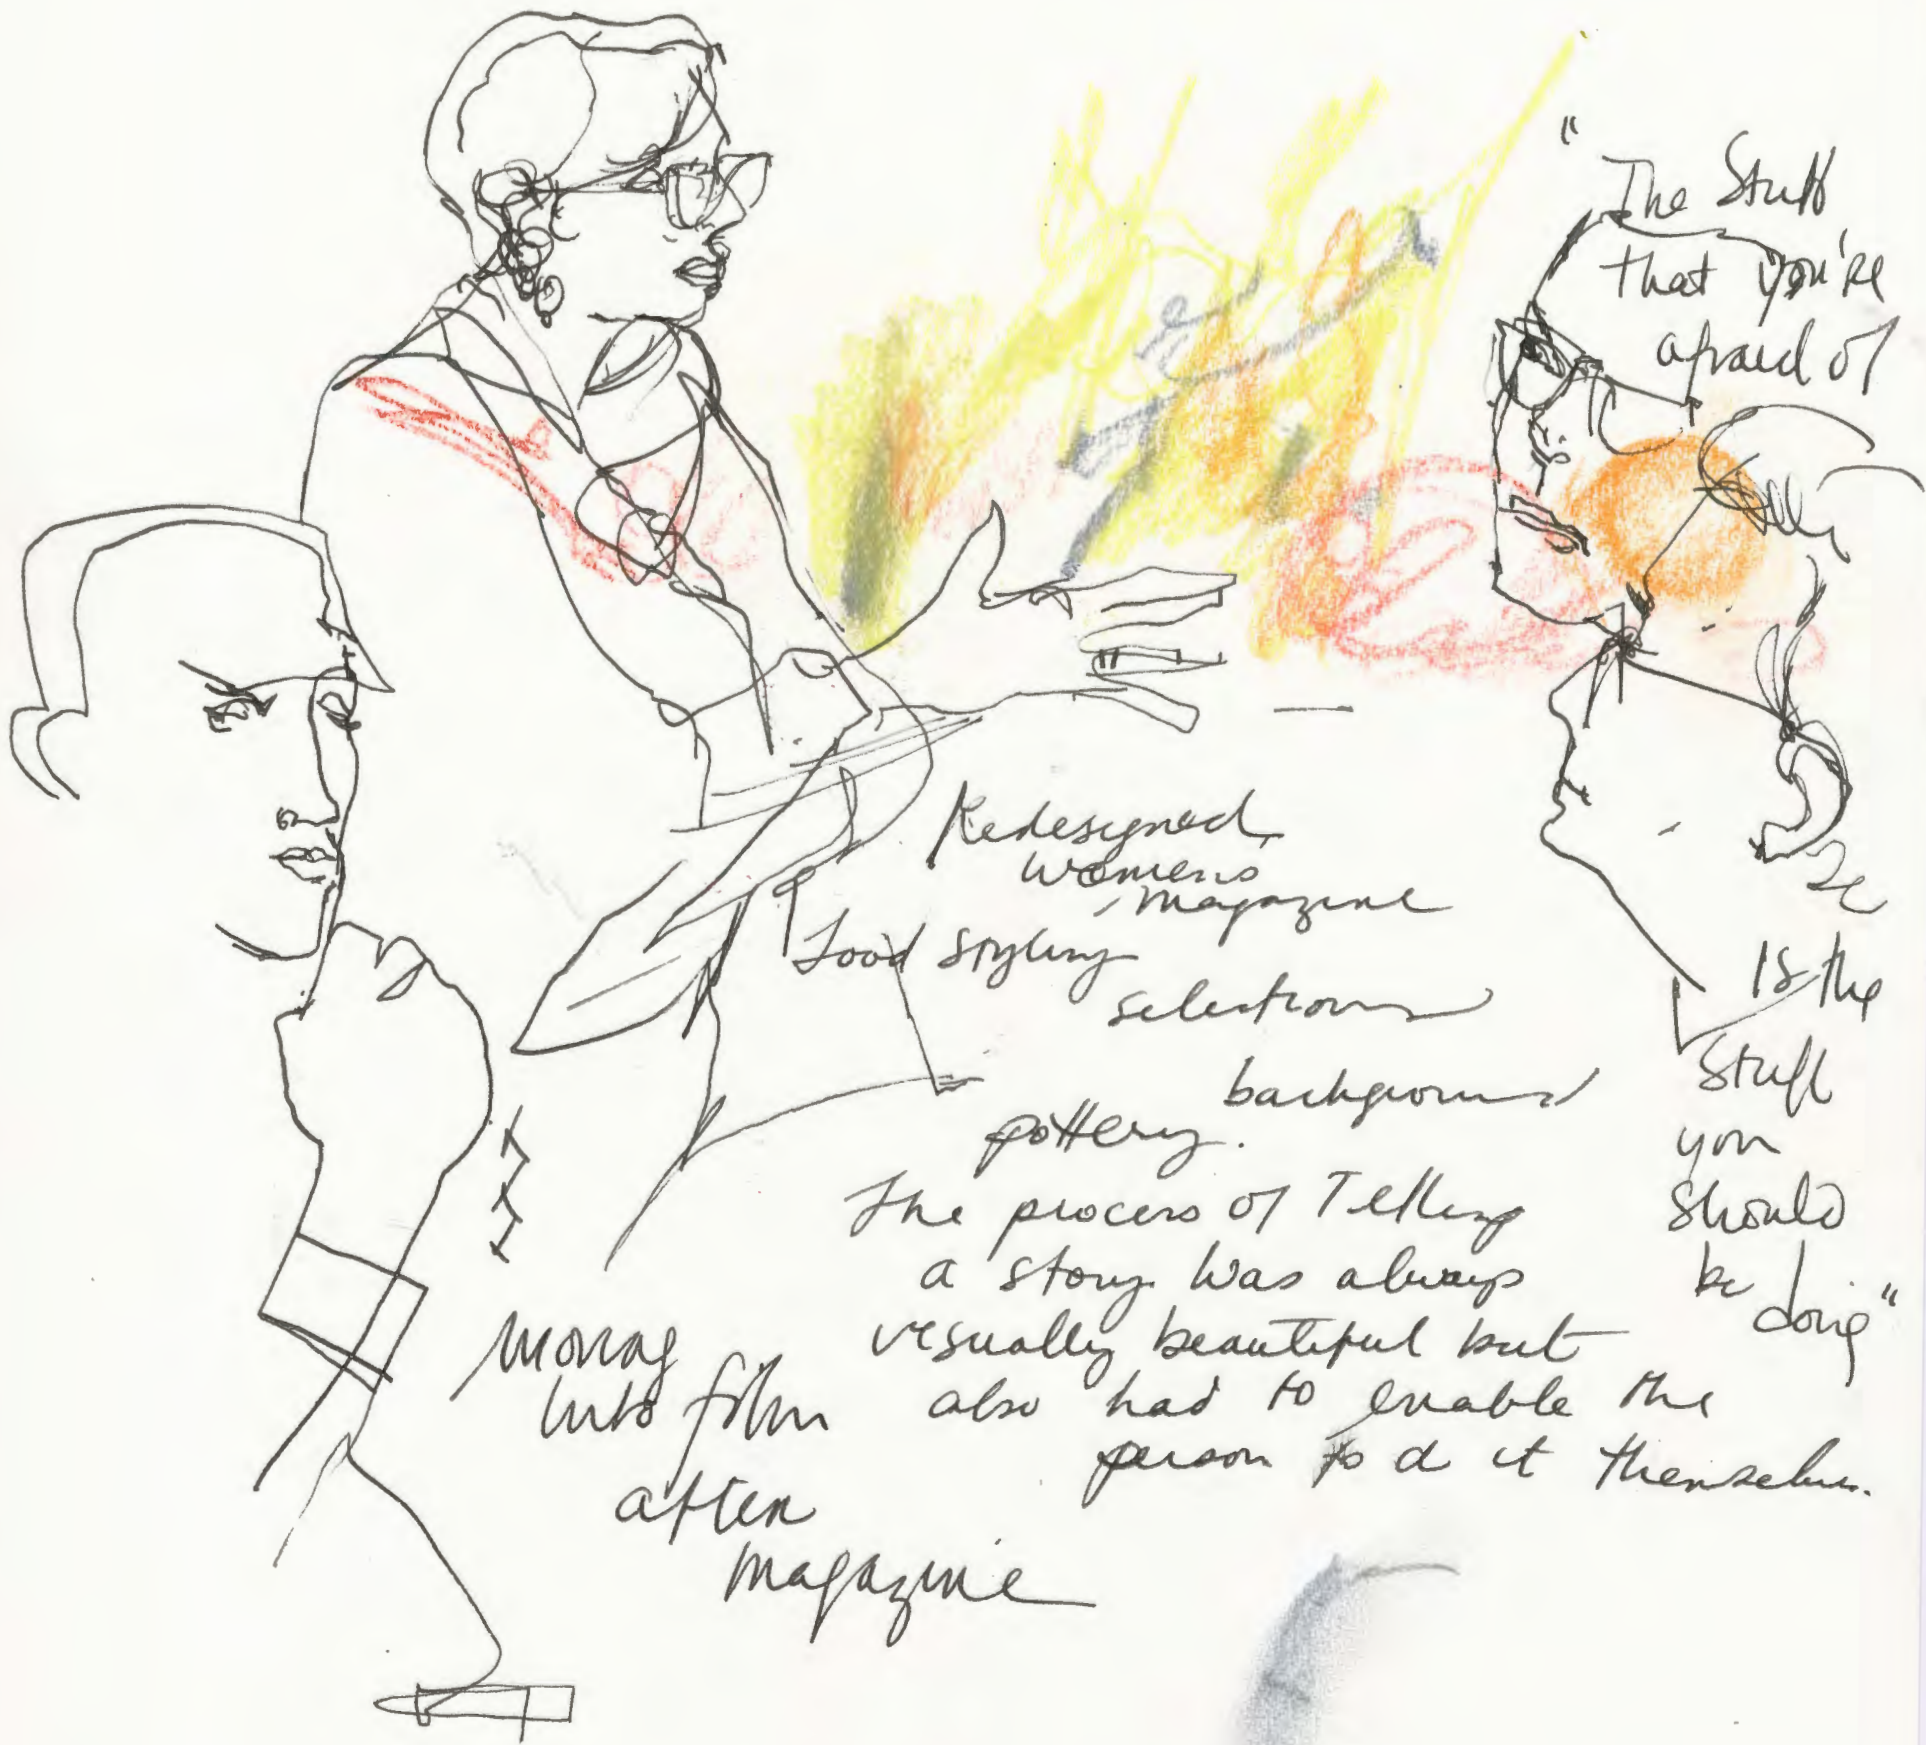 "The Stuff
that you're
afraid of
is the
stuff
you
should
be
doing"
Redesigned
womens
magazine
Food styling
selections
background
pottery.
The process of Telling
a story was always
visually beautiful but
also had to enable the
person to d it themselves.
Moving
into film
after
magazine